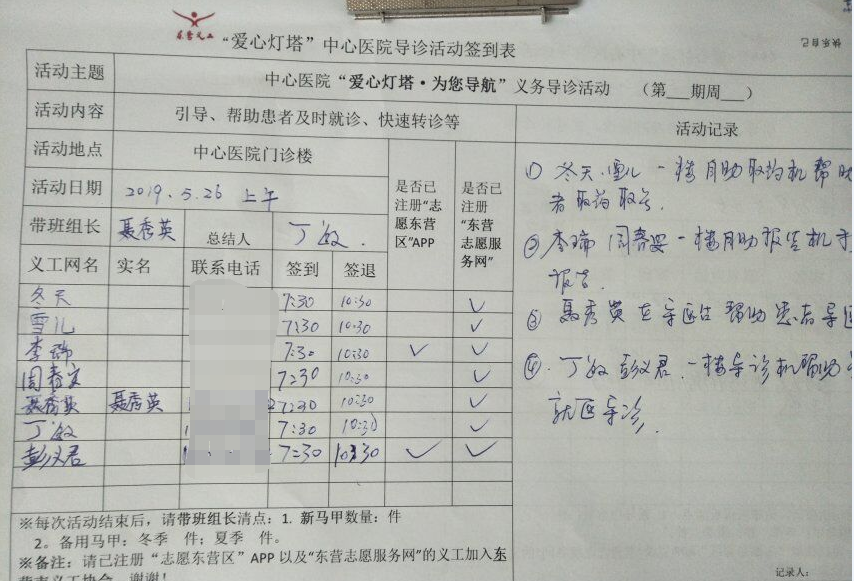 东营义工
“爱心灯塔”中心医院导诊活动签到表
活动主题 中心医院“爱心灯塔·为您导航”义务导诊活动 （第___期周___）
活动内容 引导、帮助患者及时就诊、快速转诊等 活动记录
活动地点 中心医院门诊楼
活动日期 2019.5.26 上午
是否已注册“志愿东营区”APP
是否已注册“东营志愿服务网”
带班组长 聂秀英 总结人 丁敏.
义工网名 实名 联系电话 签到 签退
冬天 7:30 10:30 ✓
雪儿 7:30 10:30 ✓
李瑞 7:30 10:30 ✓ ✓
周春安 7:30 10:30 ✓
聂秀英 聂秀英 7:30 10:30 ✓
丁敏 7:30 10:30 ✓
彭义君 7:30 10:30 ✓ ✓
① 冬天.雪儿 一楼自助取药机帮助
者取药取号.
② 李瑞 周春安 一楼自助报告机
报告.
③ 聂秀英在导医台 帮助患者导医
④. 丁敏 彭义君.一楼导诊机帮助
就医导诊.
※每次活动结束后，请带班组长清点：1. 新马甲数量： 件
2。备用马甲：冬季 件；夏季 件。
※备注：请已注册“志愿东营区”APP以及“东营志愿服务网”的义工加入东
营市义工协会，谢谢！
记录人：
快乐自己